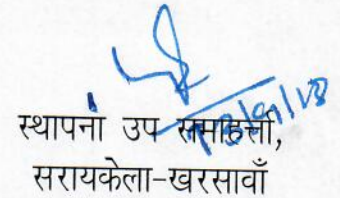 स्थापना उप समाहर्त्ता,
सरायकेला-खरसावाँ